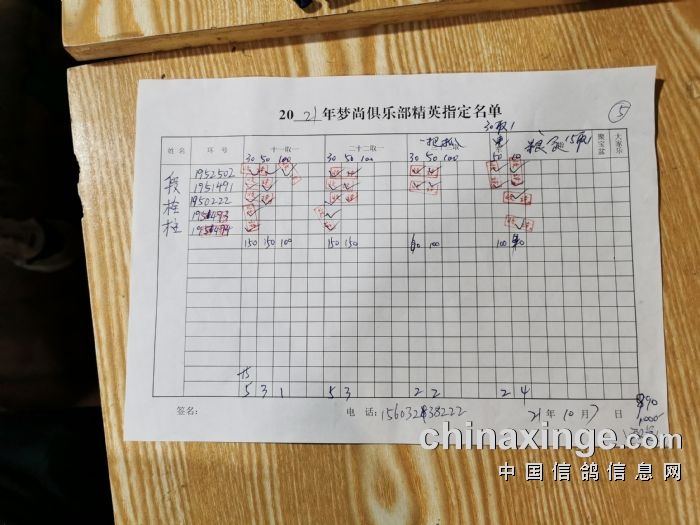 2021年梦尚俱乐部精英指定名单
⑤
30取1
姓名 环号 十一取一 二十二取一 一把抓 15取1 聚宝盆 大家乐
30 50 100 30 50 100 30 50 100 50
段 1952502
1951491
拴 1950222
1951493
柱 1951494
150 150 100 150 150 100 100
15
5 3 1 5 3 2 2 2 4
签名： 电话： 21年10月7日
1000
chinaxinge.com
中国信鸽信息网